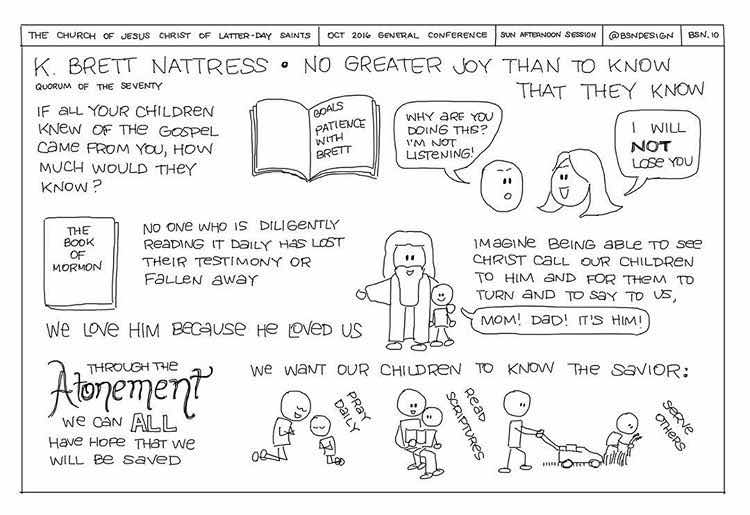 THE CHURCH OF JESUS CHRIST OF LATTER-DAY SAINTS
OCT 2016 GENERAL CONFERENCE
SUN AFTERNOON SESSION
@BSNDESIGN
BSN.10
K. BRETT NATTRESS • NO GREATER JOY THAN TO KNOW
THAT THEY KNOW
QUORUM OF THE SEVENTY
IF ALL YOUR CHILDREN
KNEW OF THE GOSPEL
CAME FROM YOU, HOW
MUCH WOULD THEY
KNOW?
GOALS
PATIENCE
WITH
BRETT
WHY ARE YOU
DOING THIS?
I'M NOT
LISTENING!
I WILL
NOT
LOSE YOU
THE
BOOK
OF
MORMON
NO ONE WHO IS DILIGENTLY
READING IT DAILY HAS LOST
THEIR TESTIMONY OR
FALLEN AWAY
IMAGINE BEING ABLE TO SEE
CHRIST CALL OUR CHILDREN
TO HIM AND FOR THEM TO
TURN AND TO SAY TO US,
MOM! DAD! IT'S HIM!
WE LOVE HIM BECAUSE HE LOVED US
THROUGH THE
Atonement
WE CAN ALL
HAVE HOPE THAT WE
WILL BE SAVED
WE WANT OUR CHILDREN TO KNOW THE SAVIOR:
PRAY
DAILY
READ
SCRIPTURES
SERVE
OTHERS